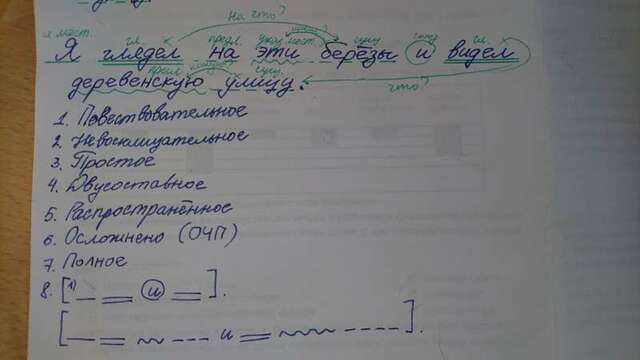 на что?
я мест. гл. предл. указ. мест. сущ. союз гл.
Я глядел на эти берёзы и видел
прил. сущ.
деревенскую улицу.
что?
1. Повествовательное
2. Невосклицательное
3. Простое
4. Двусоставное
5. Распространённое
6. Осложнено (ОЧП)
7. Полное
8. [1) и ].
[ и ].